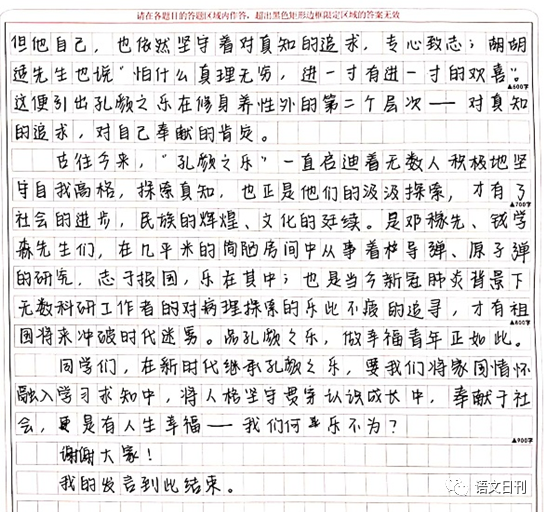 请在各题目的答题区域内作答，超出黑色矩形边框限定区域的答案无效
但他自己，也依然坚守着对真知的追求，专心致志；胡胡
适先生也说“怕什么真理无穷，进一寸有进一寸的欢喜”。
▲600字
这便引出孔颜之乐在修身养性外的第二个层次——对真知
的追求，对自己奉献的肯定。
古往今来，“孔颜之乐”一直启迪着无数人积极地坚
守自我高格，探索真知，也正是他们的汲汲探索，才有了
▲700字
社会的进步，民族的辉煌、文化的延续。是邓稼先、钱学
森先生们，在几平米的简陋房间中从事着核导弹、原子弹
的研究，志于报国，乐在其中；也是当今新冠肺炎背景下
无数科研工作者的对病理探索的乐此不疲的追寻，才有祖
▲800字
国将来冲破时代迷雾。品孔颜之乐，做幸福青年正如此。
同学们，在新时代继承孔颜之乐，要我们将家国情怀
融入学习求知中，将人格坚守贯穿认识成长中，奉献于社
会，更是有人生幸福——我们何乐不为？
▲900字
谢谢大家！
我的发言到此结束。
语文日刊